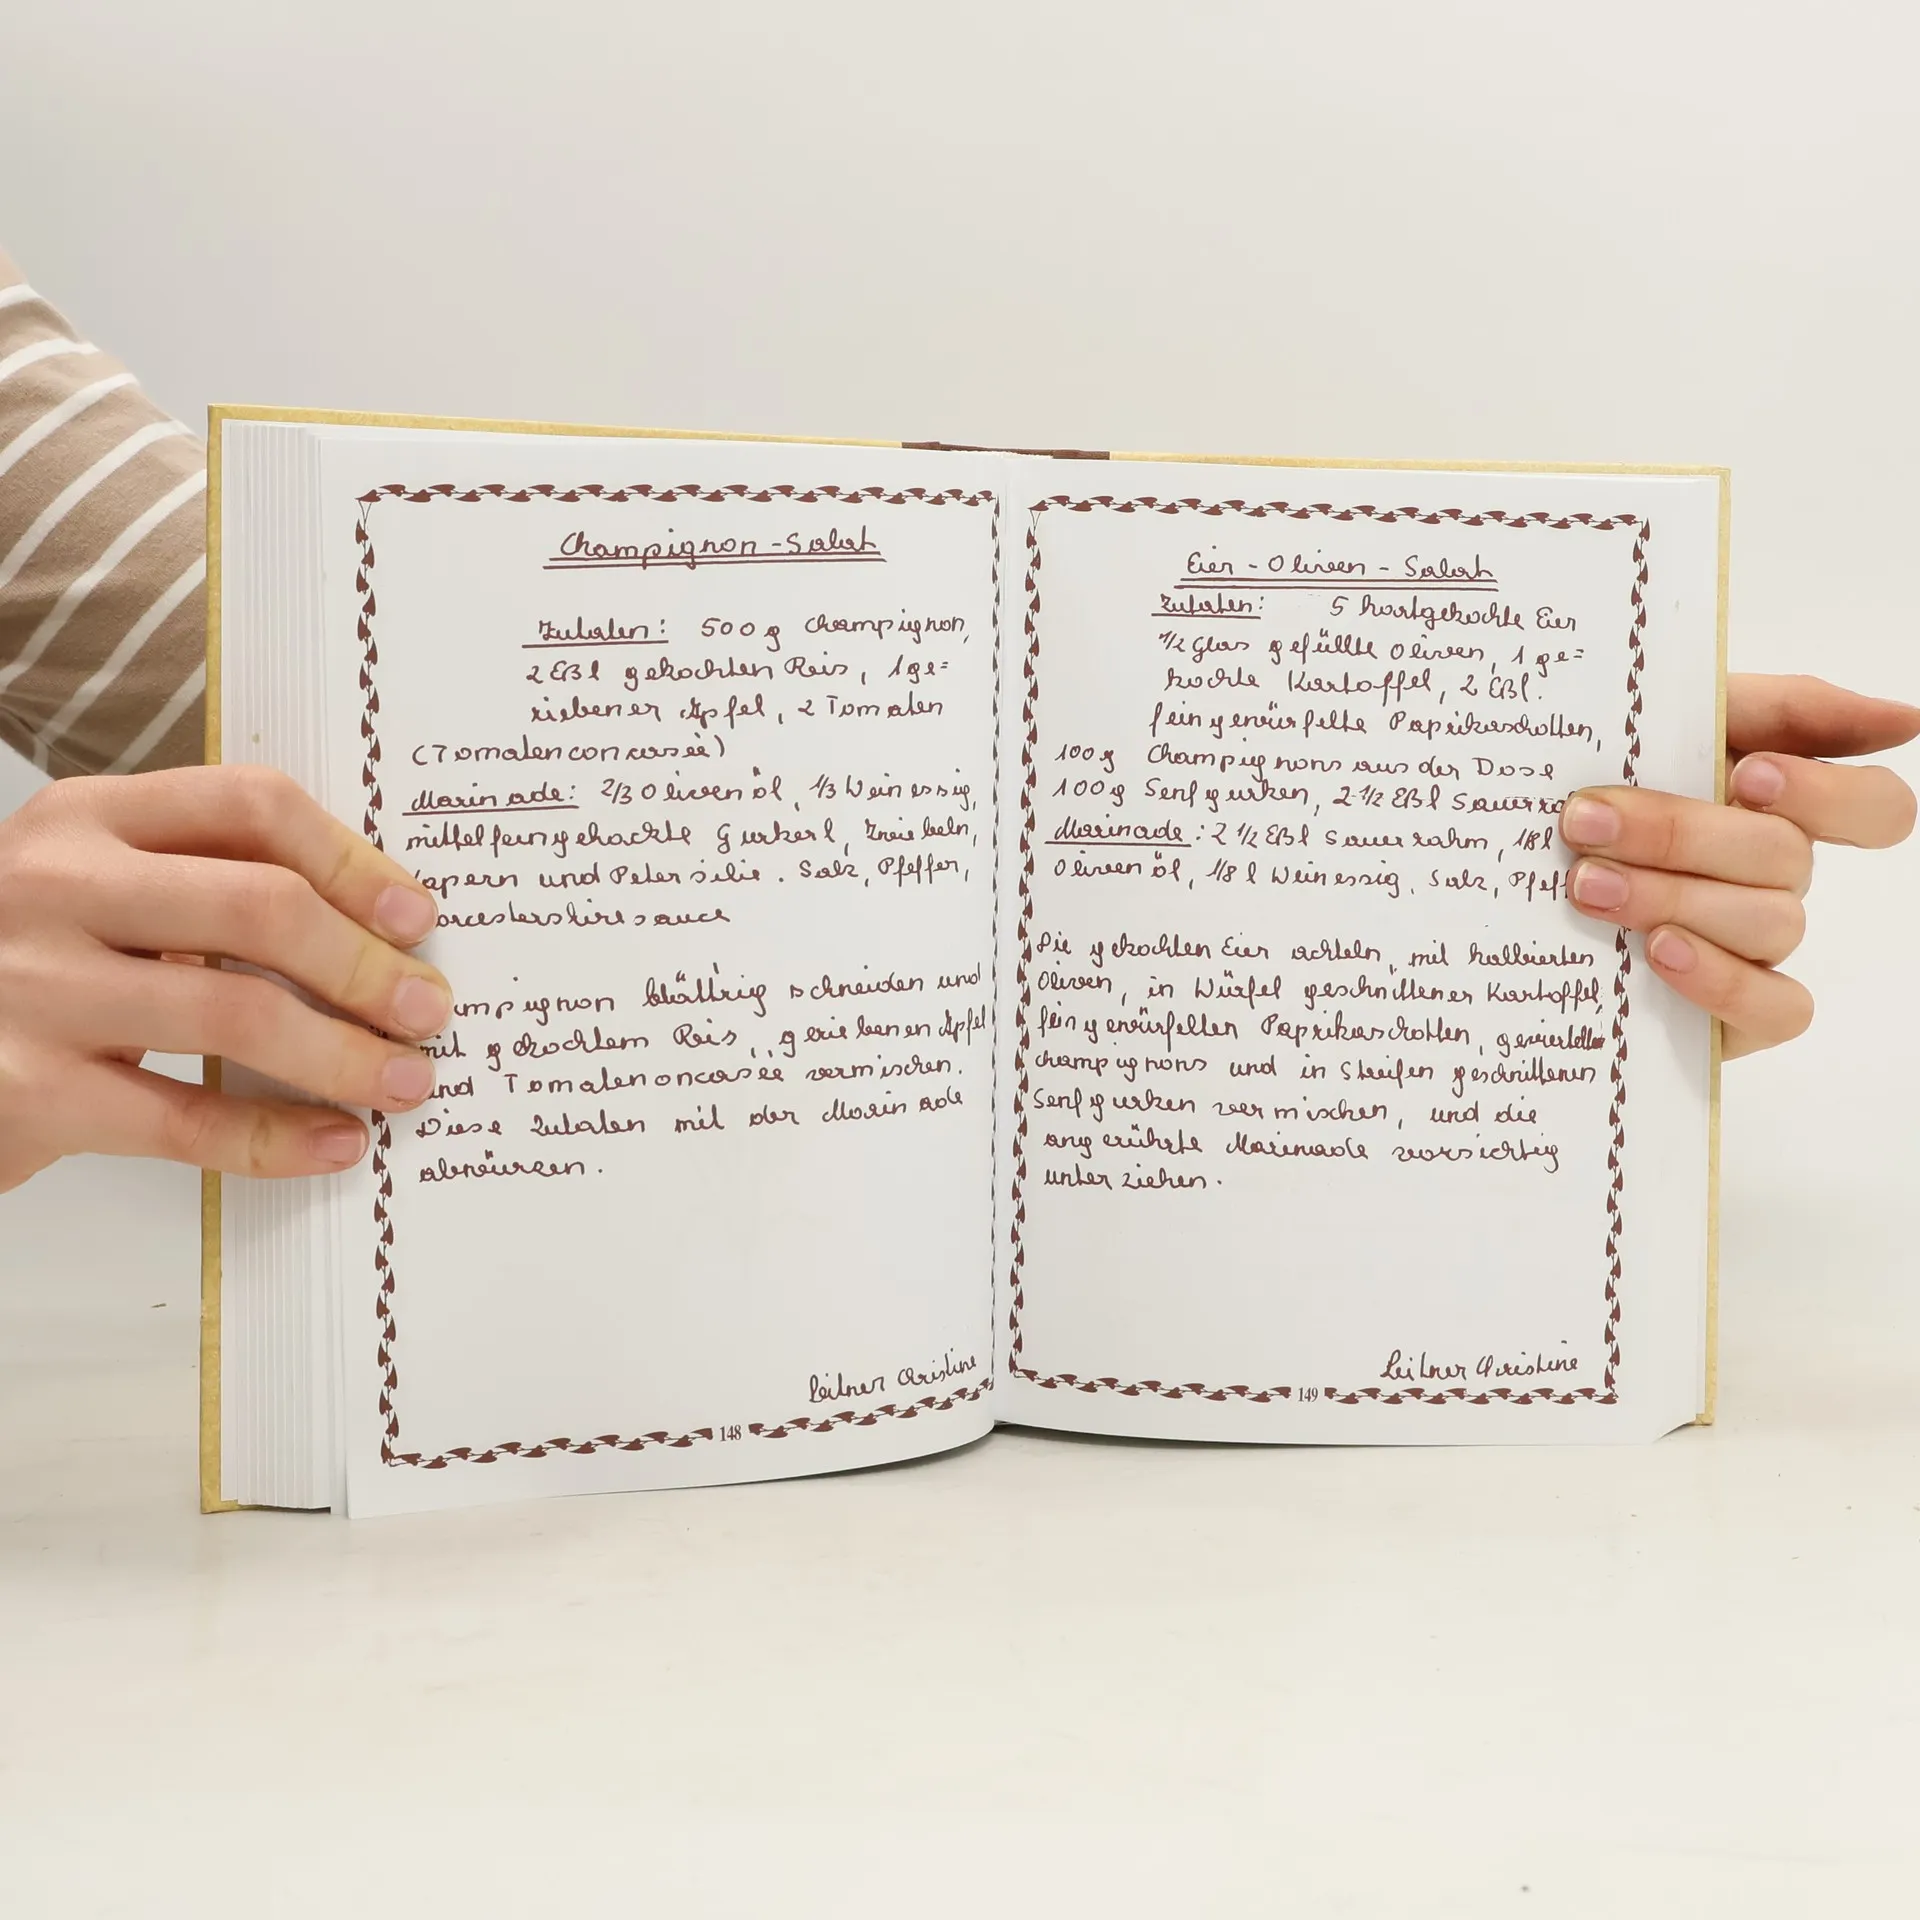 Champignon-Salat
Zutaten: 500g Champignon,
2 Eßl gekochten Reis, 1 ge=
riebener Apfel, 2 Tomaten
(Tomatenconcasée)
Marinade: 2/3 Olivenöl, 1/3 Weinessig,
mittelfeingehackte Gurkerl, Zwiebeln,
apern und Petersilie. Salz, Pfeffer,
orcestershiresauce
mpignon blättrig schneiden und
mit gekochtem Reis, geriebenen Apfel
und Tomatenoncasée vermischen.
Diese Zutaten mit der Marinade
abwürzen.
Leitner Christine
148
Eier-Oliven-Salat
Zutaten: 5 hartgekochte Eier
1/2 Glas gefüllte Oliven, 1 ge=
kochte Kartoffel, 2 Eßl.
feingewürfelte Paprikaschotten,
100g Champignons aus der Dose
100g Senfgurken, 2-1/2 Eßl Sauerra
Marinade: 2 1/2 Eßl Sauerrahm, 1/8 l
Olivenöl, 1/8 l Weinessig, Salz, Pfeff
Die gekochten Eier achteln, mit halbierten
Oliven, in Würfel geschnittener Kartoffel,
feingewürfelten Paprikaschotten, geviertelten
Champignons und in Streifen geschnittenen
Senfgurken vermischen, und die
angerührte Marinade vorsichtig
unterziehen.
Leitner Christine
149